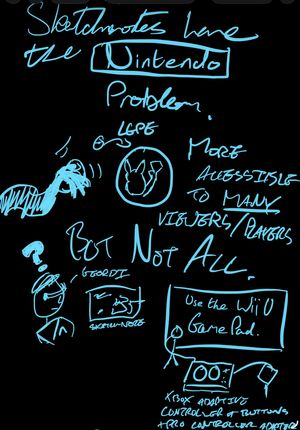 Sketchnotes have
the Nintendo
Problem.
MORE
ACCESSIBLE
TO MANY
VIEWERS/PLAYERS
BUT NOT ALL.
GEORDI
SKETCH-NOTE
Use the Wii U
GamePad.
XBOX ADAPTIVE
CONTROLLER + BUTTONS
+ PRO CONTROLLER ADAPTER